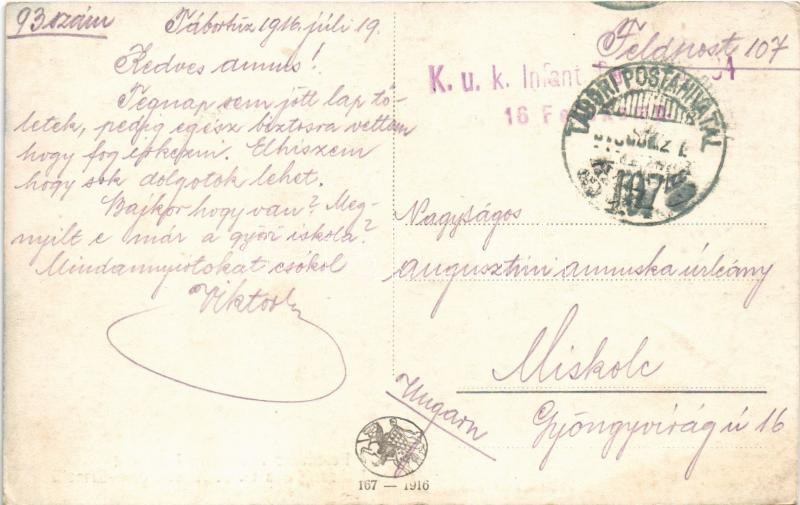 93 szám
Tábortűz 1916. júli 19.
Kedves annus!
Tegnap sem jött lap tő-
letek, pedig egész biztosra vettem
hogy fog érkezni. Elhiszem
hogy sok dolgotok lehet.
hogy van? Meg-
nyilt e már a győri iskola?
Mindannyiotokat csókol
Viktor
Feldpost 107
K. u. k. Infant
16
TÁBORI POSTAHIVATAL
107
Nagyságos
Augusztini annuska úrleány
Miskolc
Gyöngyvirág ú 16
Ungarn
167 — 1916